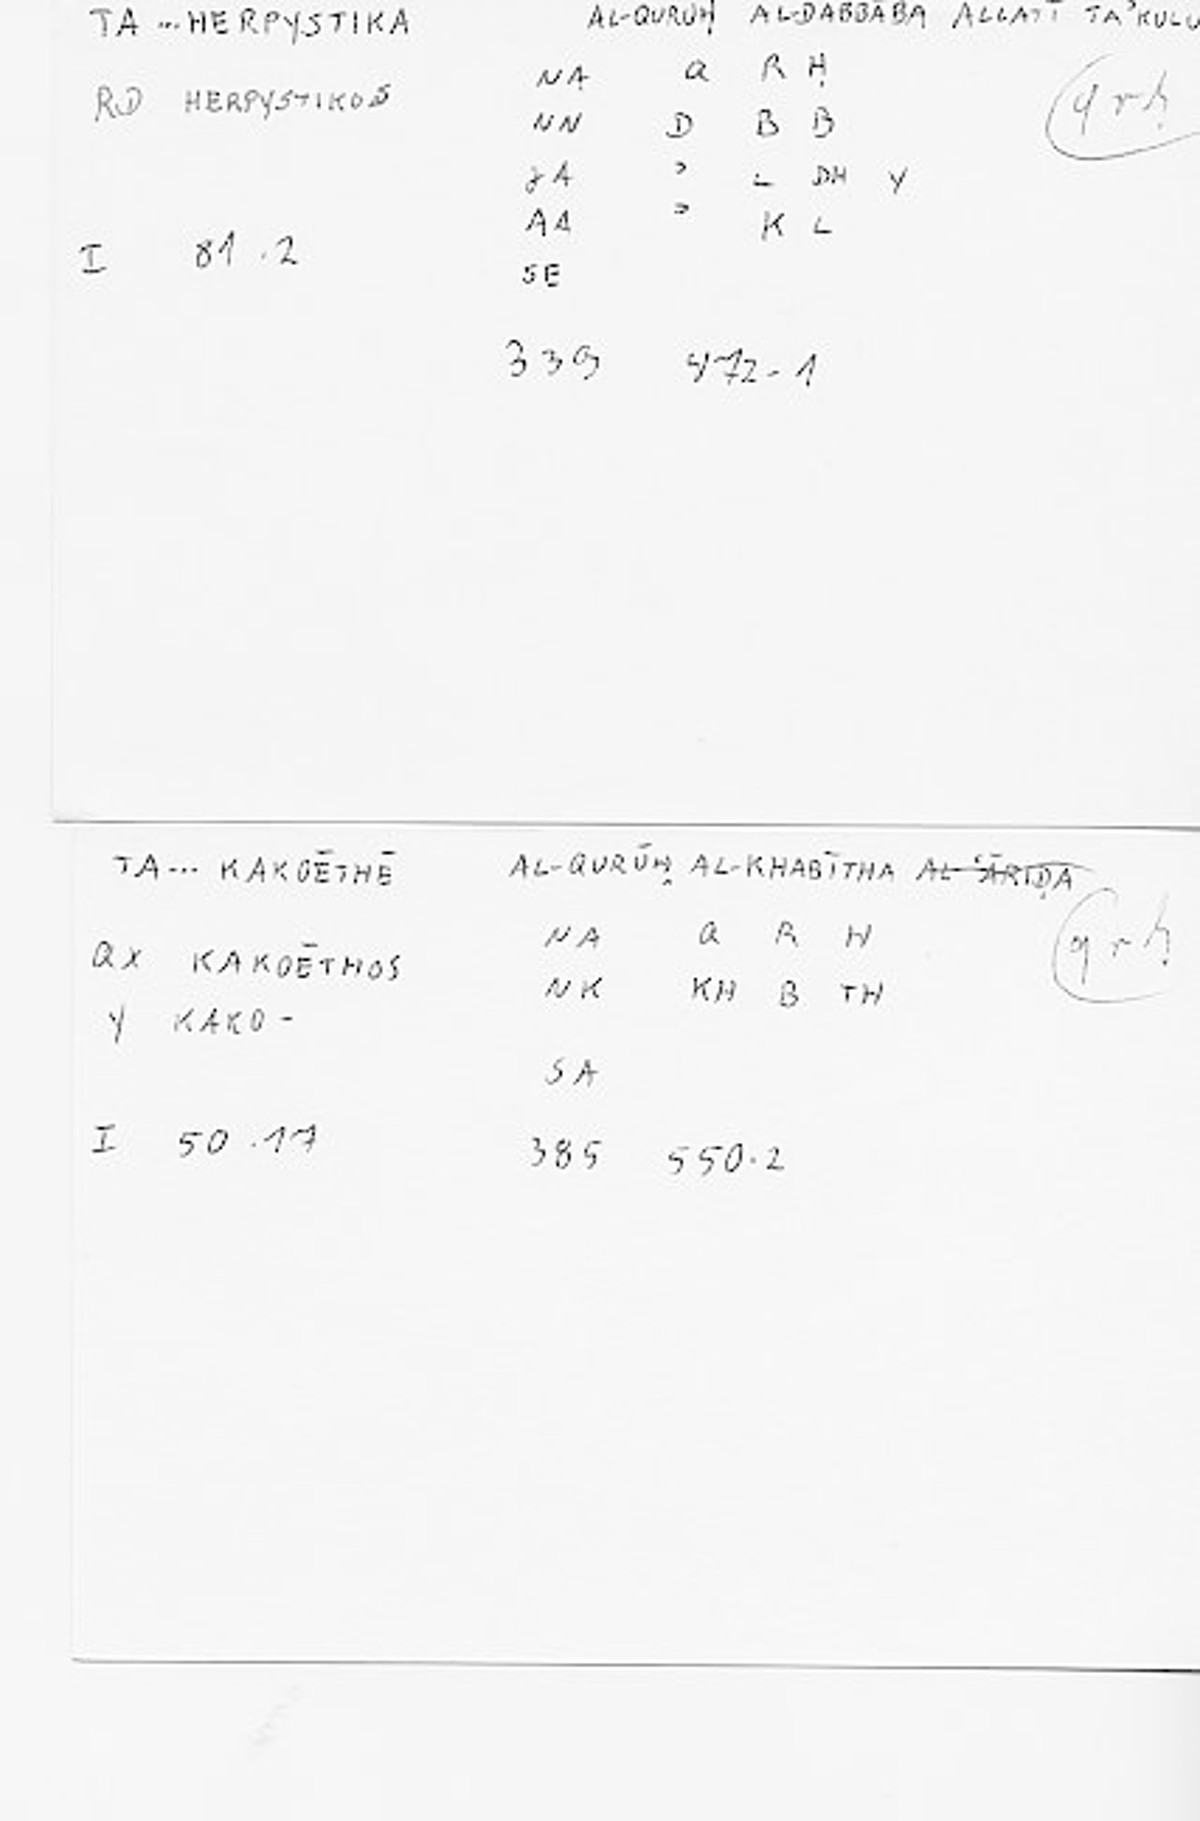 TA ... HERPYSTIKA AL-QURŪḤ AL-DABBĀBA ALLATĪ TA'KULU
NA Q R Ḥ
RD HERPYSTIKOS qrḥ
NN D B B
JA ' L DH Y
AA ' K L
I 81.2
SE
339 472-1
TA... KAKOĒTHĒ AL-QURŪḤ AL-KHABĪTHA AL-ʿĀRIḌA
NA Q R H qrḥ
QX KAKOĒTHOS
NK KH B TH
Y KAKO-
SA
I 50.17 385 550.2